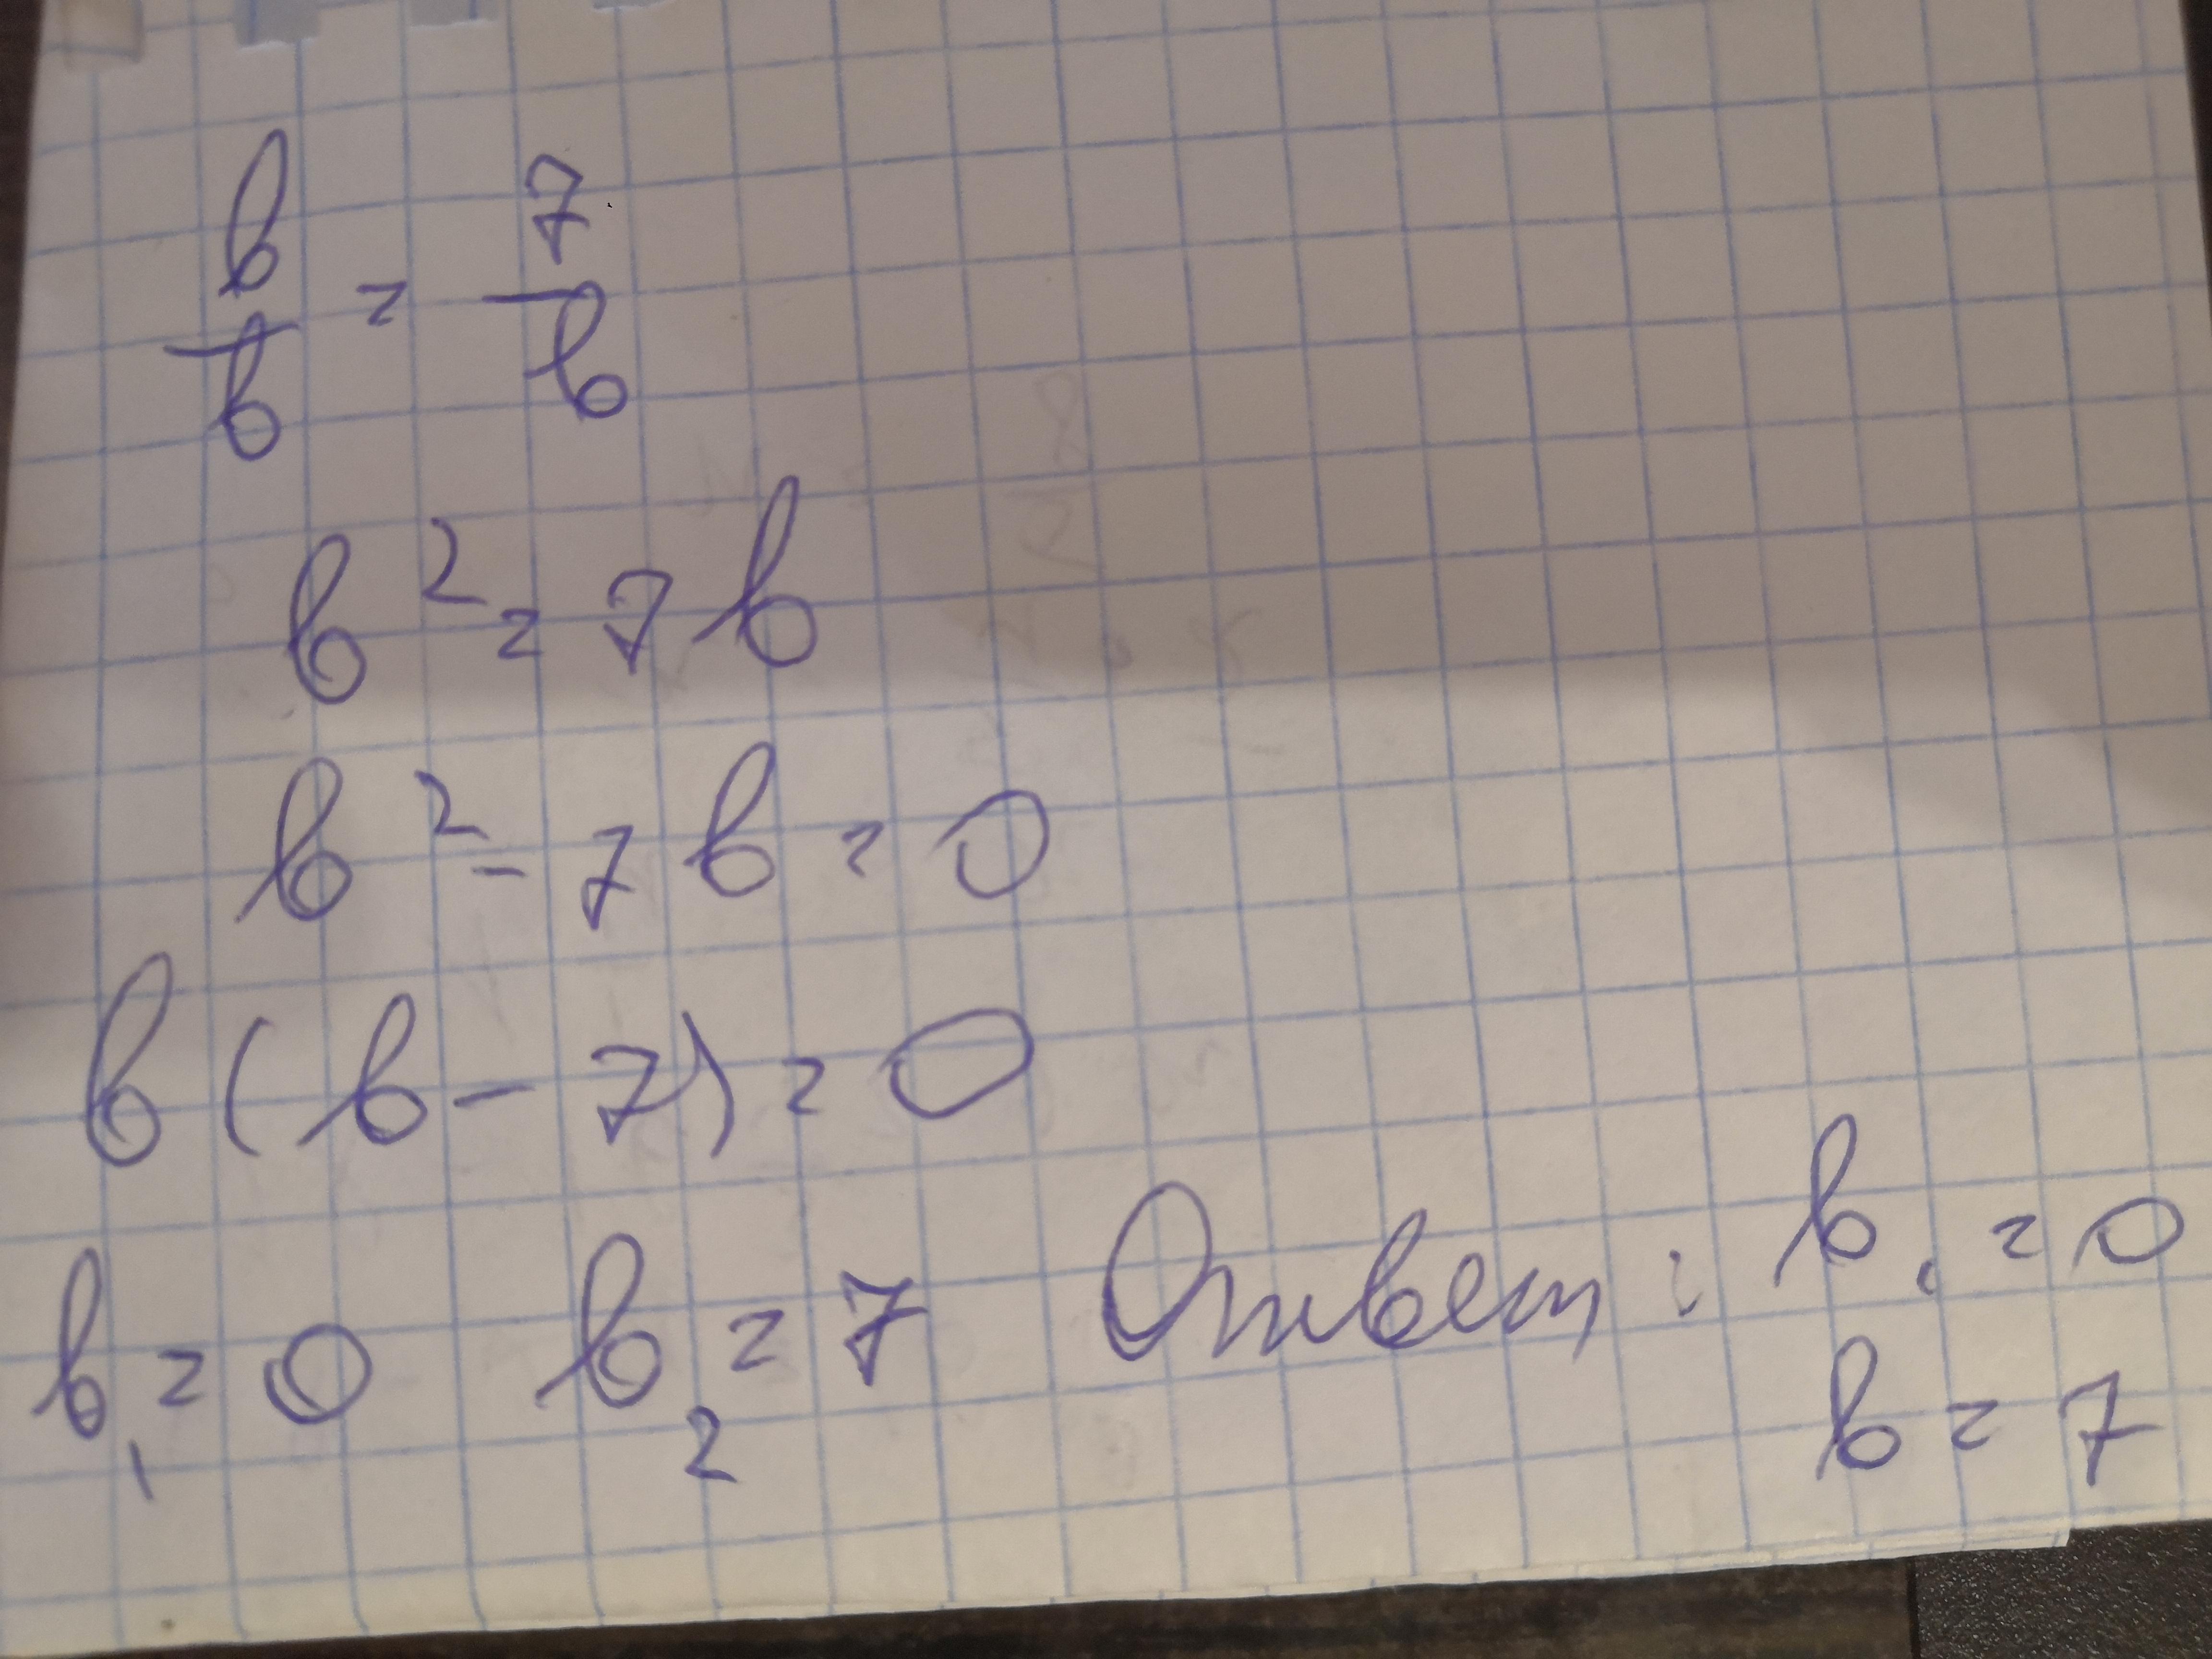 b/b = 7/b
b² = 7b
b² - 7b = 0
b(b - 7) = 0
b₁ = 0 b₂ = 7 Ответ: b₁ = 0
b = 7